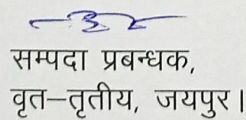 सम्पदा प्रबन्धक,
वृत–तृतीय, जयपुर।